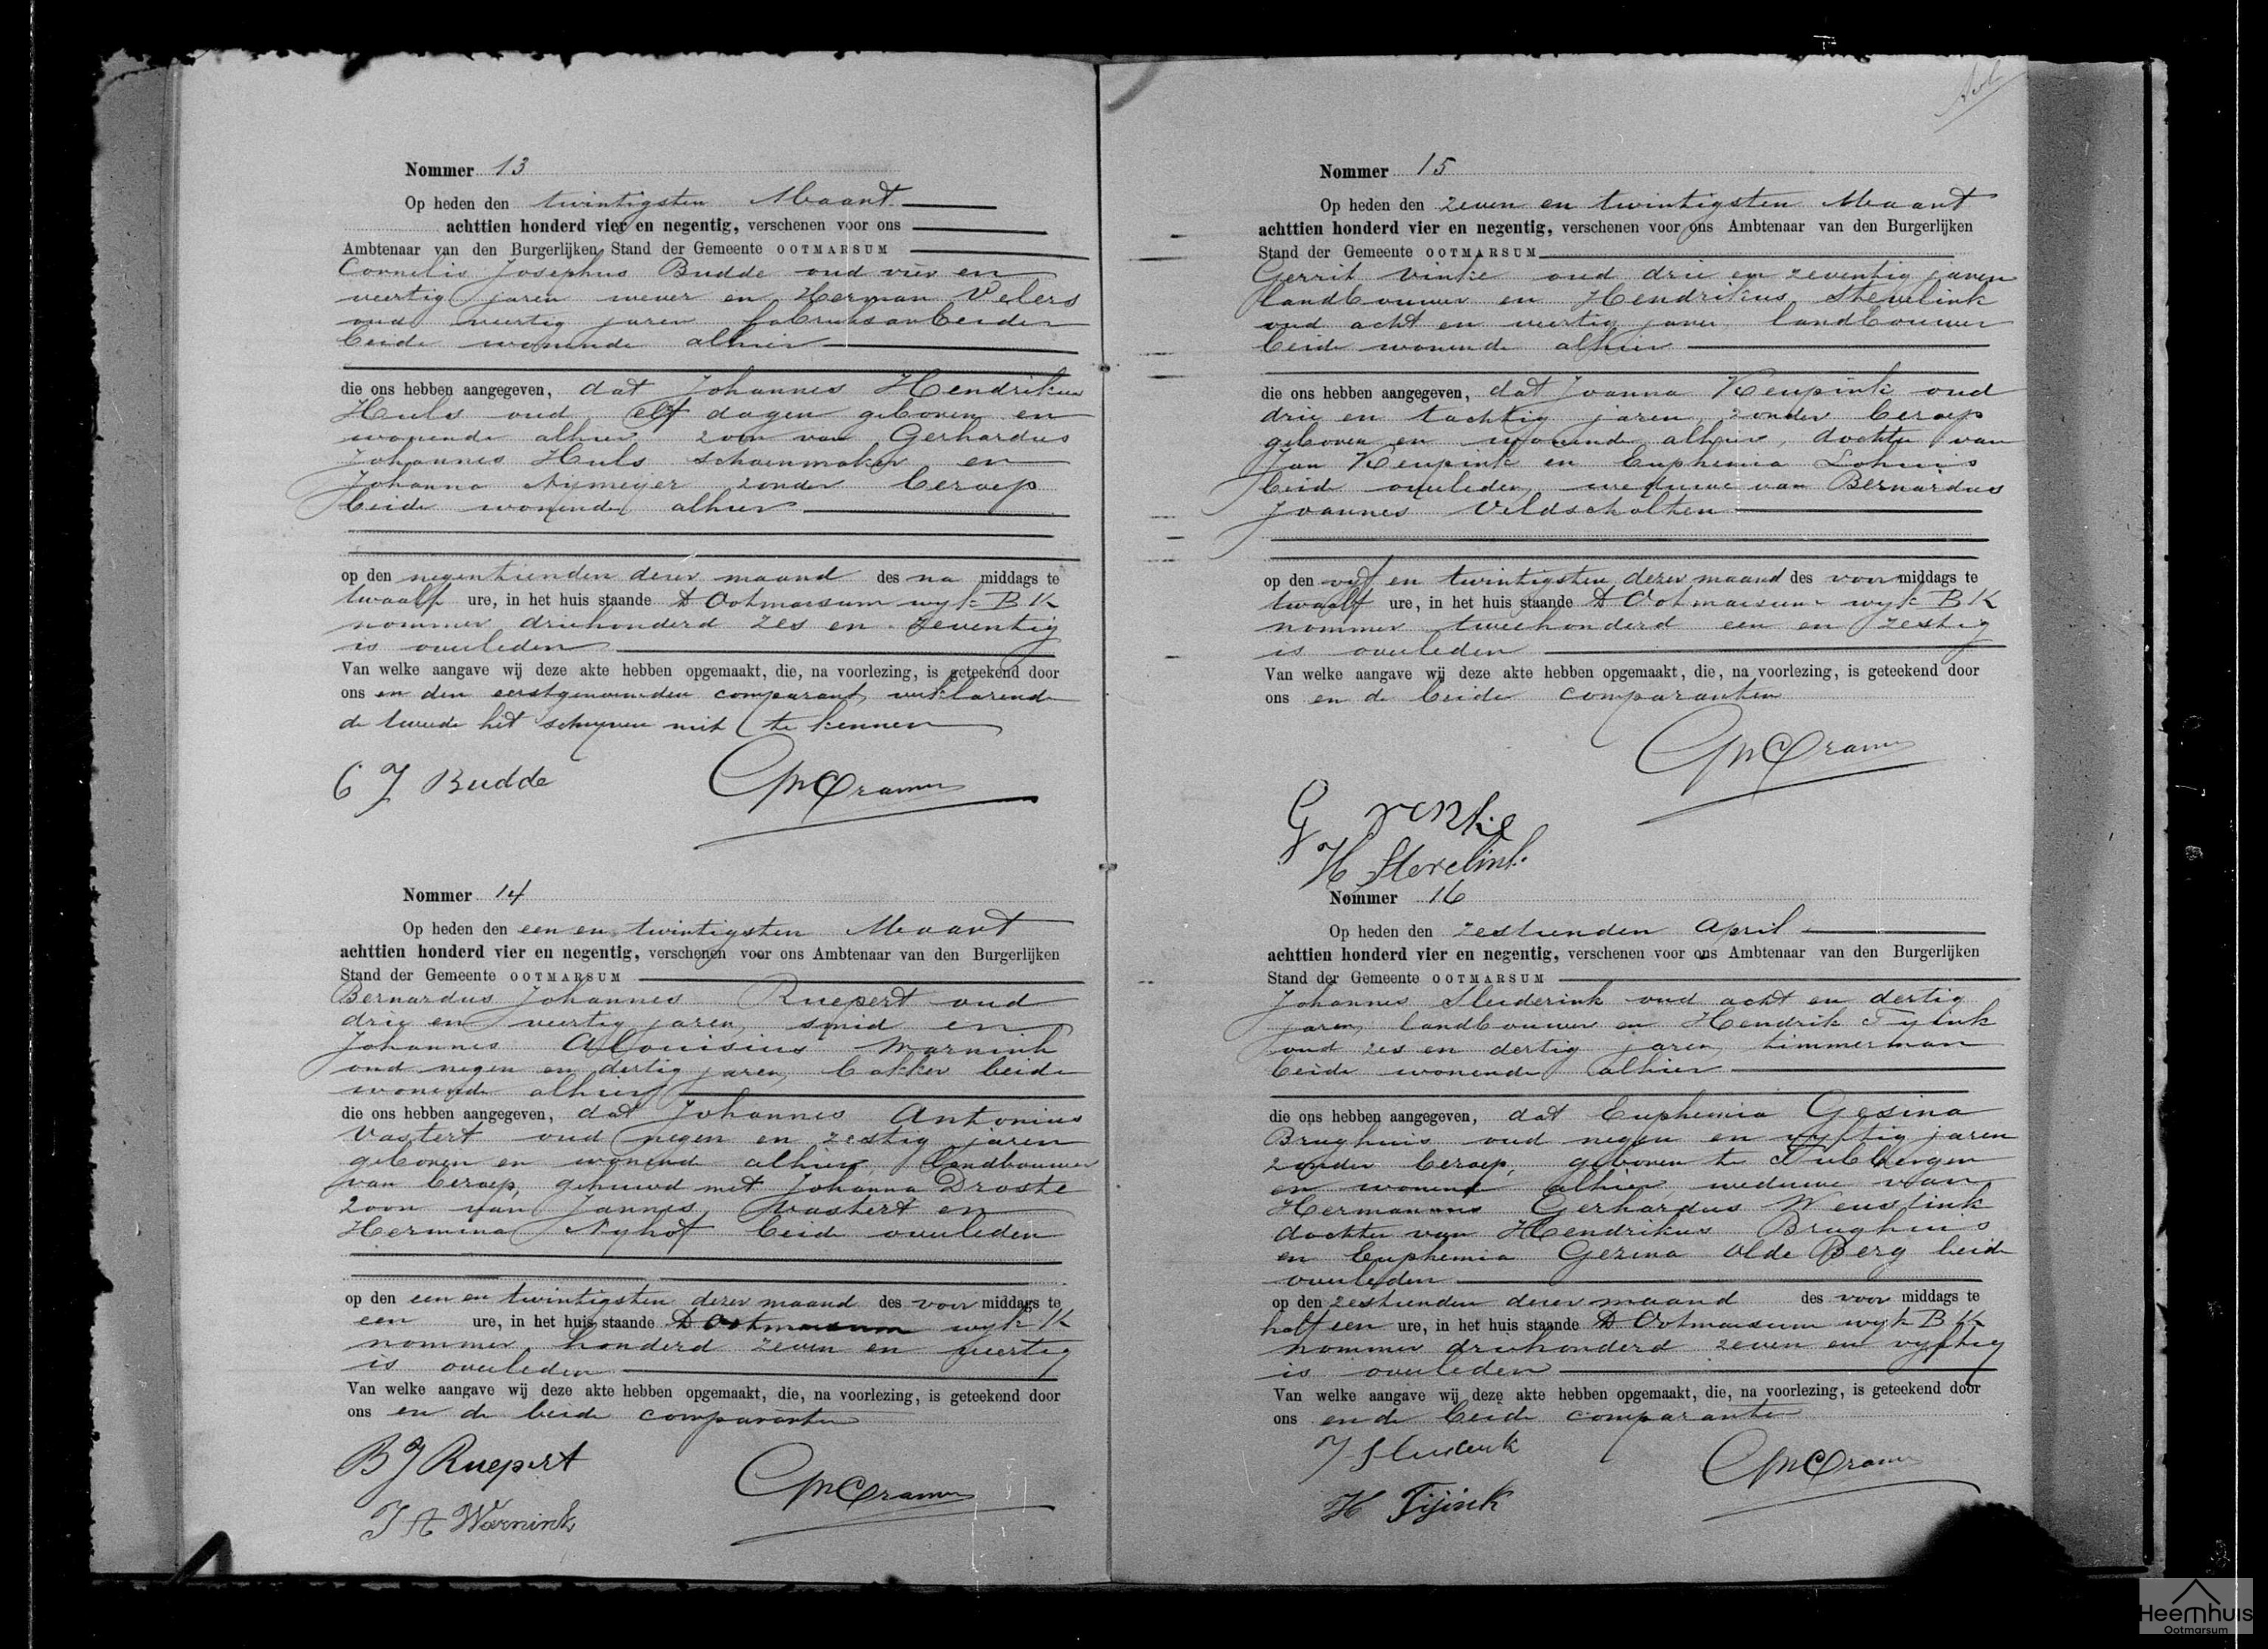 Nommer 13
Op heden den twintigsten Maart
achttien honderd vier en negentig, verschenen voor ons
Ambtenaar van den Burgerlijken Stand der Gemeente OOTMARSUM
Cornelis Josephus Budde oud vier en
veertig jaren wever en Herman Velers
oud veertig jaren fabrieksarbeider
beide wonende alhier
die ons hebben aangegeven, dat Johannes Hendrikus
Huls oud elf dagen geboren en
wonende alhier zoon van Gerhardus
Johannes Huls schoenmaker en
Johanna Nymeijer zonder beroep
beide wonende alhier
op den negentienden dezer maand des na middags te
twaalf ure, in het huis staande te Ootmarsum wyk BK
nommer driehonderd zes en zeventig
is overleden
Van welke aangave wij deze akte hebben opgemaakt, die, na voorlezing, is geteekend door
ons en den eerstgenoemden comparant, verklarende
de tweede het schryven niet te kennen
C J Budde
Cramer
Nommer 14
Op heden den een en twintigsten Maart
achttien honderd vier en negentig, verschenen voor ons Ambtenaar van den Burgerlijken
Stand der Gemeente OOTMARSUM
Bernardus Johannes Ruepert oud
drie en veertig jaren, smid en
Johannes Alouisius Warnink
oud negen en dertig jaren, bakker beide
wonende alhier
die ons hebben aangegeven, dat Johannes Antonius
Vastert oud negen en zestig jaren
geboren en wonende alhier, landbouwer
van beroep, gehuwd met Johanna Droste
zoon van Jannes Vastert en
Hermina Nyhof beide overleden
op den een en twintigsten dezer maand des voor middags te
een ure, in het huis staande te Ootmarsum wyk K
nommer honderd zeven en veertig
is overleden
Van welke aangave wij deze akte hebben opgemaakt, die, na voorlezing, is geteekend door
ons en de beide comparanten
B J Ruepert
Cramer
J A Warnink
Nommer 15
Op heden den zeven en twintigsten Maart
achttien honderd vier en negentig, verschenen voor ons Ambtenaar van den Burgerlijken
Stand der Gemeente OOTMARSUM
Gerrit Vinke oud drie en zeventig jaren
landbouwer en Hendrikus Stevelink
oud acht en veertig jaren landbouwer
beide wonende alhier
die ons hebben aangegeven, dat Joanna Keupink oud
drie en tachtig jaren, zonder beroep
geboren en wonende alhier, dochter van
Jan Keupink en Euphemia Lohuis
beide overleden, weduwe van Bernardus
Joannes Veldscholten
op den vyf en twintigsten dezer maand des voor middags te
twaalf ure, in het huis staande te Ootmarsum wyk BK
nommer tweehonderd een en zestig
is overleden
Van welke aangave wij deze akte hebben opgemaakt, die, na voorlezing, is geteekend door
ons en de beide comparanten
Cramer
G Vinke
H Stevelink
Nommer 16
Op heden den zestienden April
achttien honderd vier en negentig, verschenen voor ons Ambtenaar van den Burgerlijken
Stand der Gemeente OOTMARSUM
Johannes Sleiderink oud acht en dertig
jaren, landbouwer en Hendrik Tyink
oud zes en dertig jaren, timmerman
beide wonende alhier
die ons hebben aangegeven, dat Euphemia Gesina
Brughuis oud negen en vyftig jaren
zonder beroep, geboren te Tubbergen
en wonend alhier, weduwe van
Hermannus Gerhardus Weustink
dochter van Hendrikus Brughuis
en Euphemia Gezina Olde Berg beide
overleden
op den zestienden dezer maand des voor middags te
half een ure, in het huis staande te Ootmarsum wyk BK
nommer driehonderd zeven en vyftig
is overleden
Van welke aangave wij deze akte hebben opgemaakt, die, na voorlezing, is geteekend door
ons en de beide comparanten
Cramer
H Tijink
Heemhuis
Ootmarsum